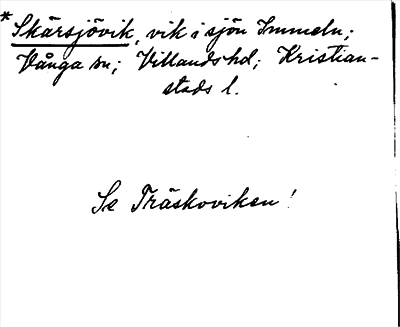 *Skärsjövik, vik i sjön Immeln;
Vånga sn; Villands hd; Kristian-
stads l.
Se Träskoviken!